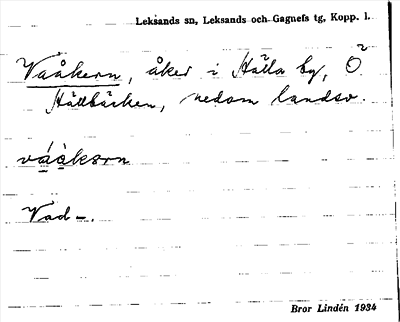 Leksands sn, Leksands och Gagnefs tg, Kopp. l.
Vaåkern, åker i Hälla by, Ö
Hällbäcken, nedom landsv.
váàkərn
Vad-.
Bror Lindén 1934